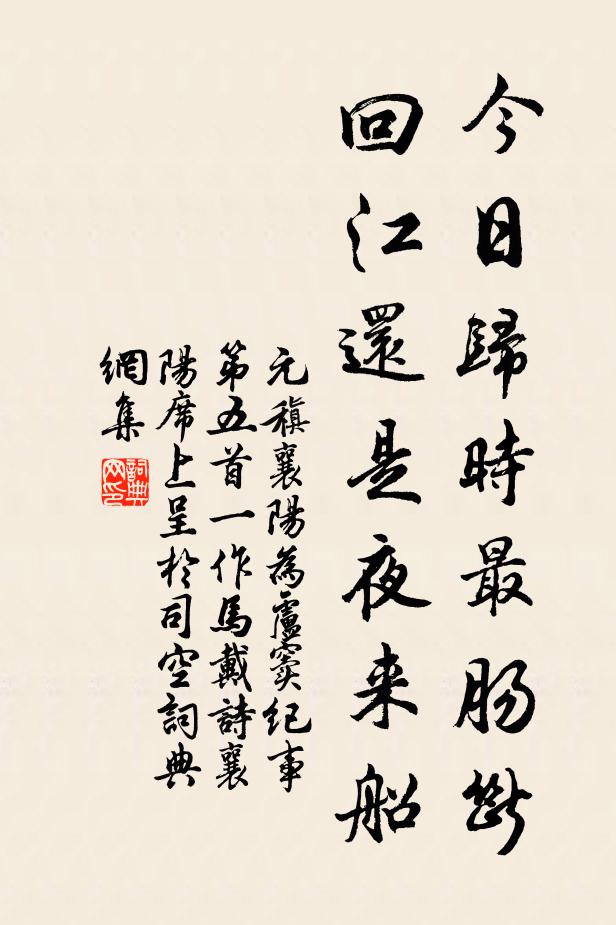 今日歸時最肠斷
回江還是夜来船
元稹襄陽為盧竇纪事
第五首一作馬戴詩襄
陽席上呈於司空詞典
網集
詞典網印